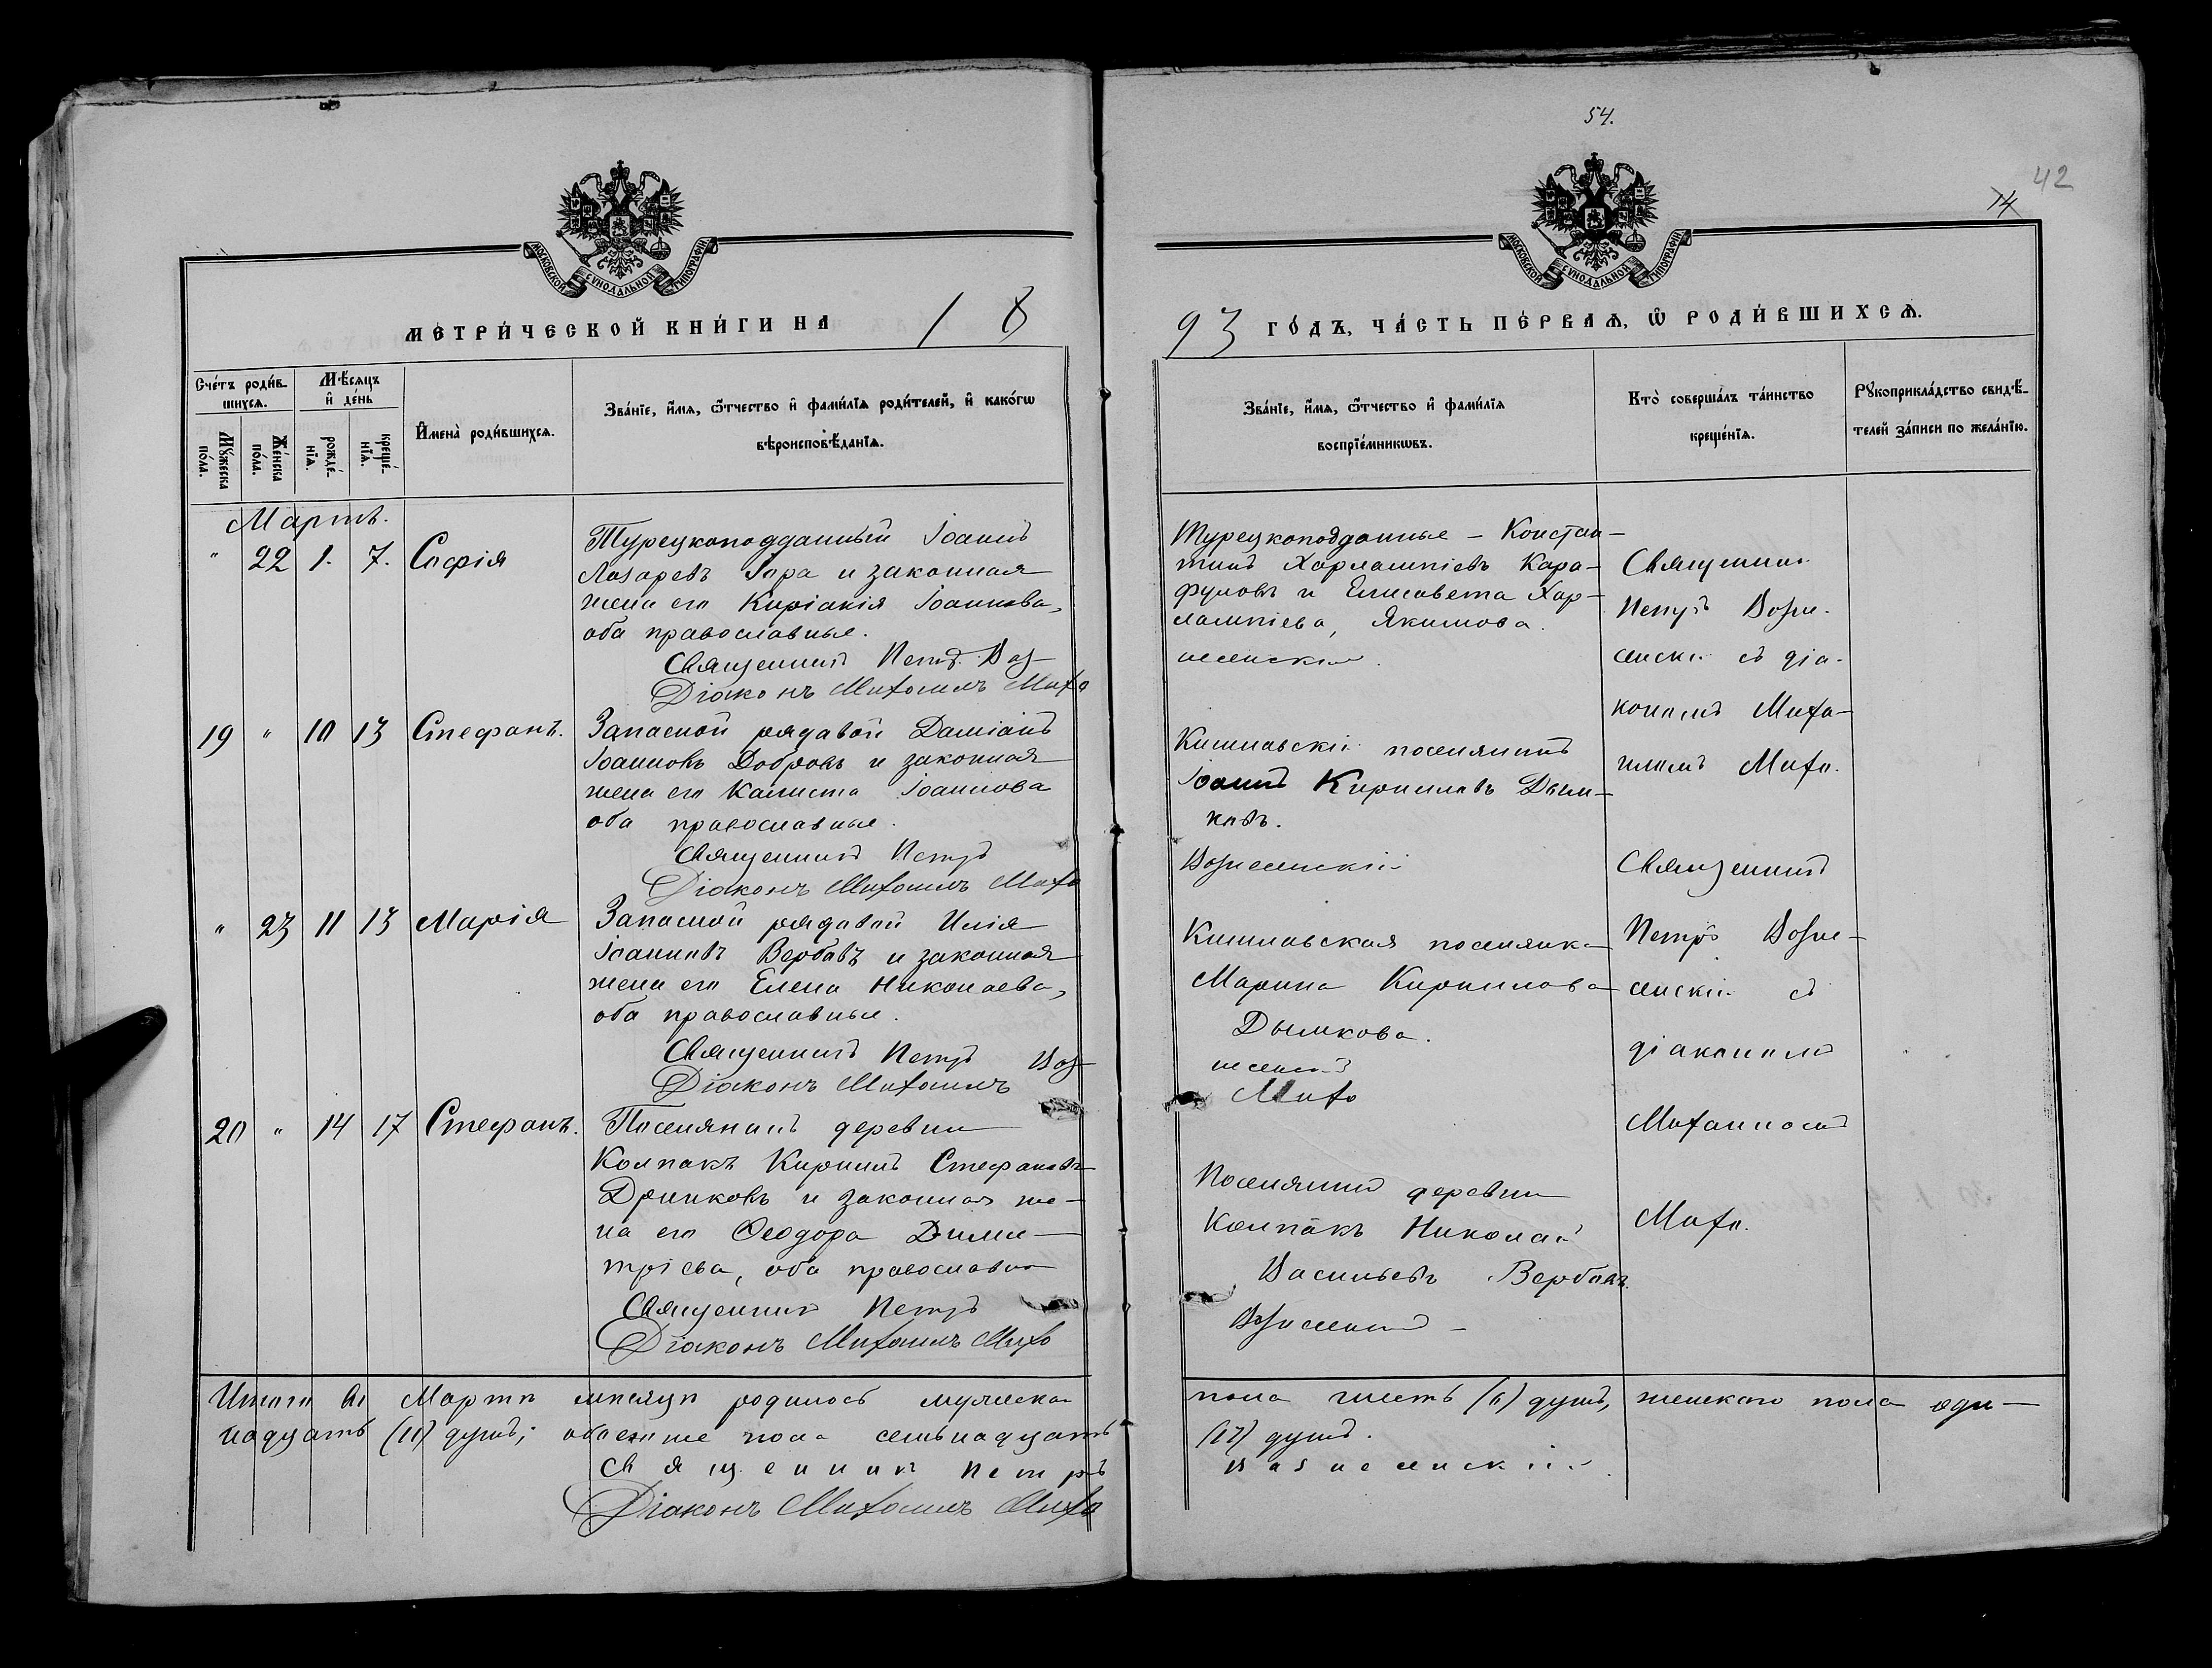 54.
42
14
МОСКОВСКОЙ СѴНОДАЛЬНОЙ ТИПОГРАФІИ
МОСКОВСКОЙ СѴНОДАЛЬНОЙ ТИПОГРАФІИ
МЕТРИ́ЧЕСКОЙ КНИ́ГИ НА 18
93 ГО́ДЪ, ЧА́СТЬ ПЕ́РВАѦ, Ѡ҆ РОДИ́ВШИХСѦ.
Сче́тъ роди́в-
шихсѧ.
Мꙋ́жеска по́ла.
Же́нска по́ла.
Мѣ́сѧцъ и҆ де́нь
рожде́-нїѧ.
креще́-нїѧ.
И҆мена̀ роди́вшихсѧ.
Зва́нїе, и҆́мѧ, ѻ҆́тчество и҆ фами́лїѧ роди́телей, и҆ како́гѡ
вѣроисповѣ́данїѧ.
Зва́нїе, и҆́мѧ, ѻ҆́тчество и҆ фами́лїѧ
воспрїе́мникѡвъ.
Кто̀ соверша́лъ та́инство
креще́нїѧ.
Рꙋкоприкла́дство свидѣ́-
телей за́писи по жела́нїю.
Мартъ.
" 22 1. 7. Софія
Турецкоподданный Іоаннъ
Лазаревъ Зора и законная
жена его Киріакія Іоаннова,
оба православные.
Священникъ Петръ Воз-
Діаконъ Михаилъ Михо
Турецкоподданные - Констан-
тинъ Харлампіевъ Кара-
фуловъ и Елисавета Хар-
лампіева, Якимова.
несенскій.
Священник
Петръ Возне-
сенскій съ діа-
кономъ Миха-
иломъ Михо.
19 " 10 13 Стефанъ.
Запасной рядавой Даміанъ
Іоанновъ Добровъ и законная
жена его Калиста Іоаннова
оба православные.
Священникъ Петръ
Діаконъ Михаилъ Михо
Кишлавскій поселянинъ
Іоаннъ Кирилловъ Дым-
ковъ.
Вознесенскій
Священникъ
Петръ Возне-
сенскій съ
діакономъ
Михаиломъ
Михо.
" 23 11 13 Марія
Запасной рядавой Илія
Іоанновъ Вербавъ и законная
жена его Елена Николаева,
оба православные.
Священникъ Петръ Воз-
Діаконъ Михаилъ
Кишлавская поселянка
Марина Кириллова
Дымкова.
несенскій
Михо
20 " 14 17 Стефанъ.
Поселянинъ деревни
Колпакъ Кириллъ Стефановъ
Дринковъ и законная же-
на его Ѳеодора Дими-
тріева, оба православны
Священникъ Петръ
Діаконъ Михаилъ Михо
Поселянинъ деревни
Колпакъ Николай
Васильевъ Вербовъ.
Вознесенскій -
Итого въ Мартѣ мѣсяцѣ родилось мужеска
пола шесть (6) душъ, женскаго пола оди-
надцать (11) душъ; обоего же пола семьнадцать
(17) душъ.
Священникъ Петръ
Вознесенскій.
Діаконъ Михаилъ Михо